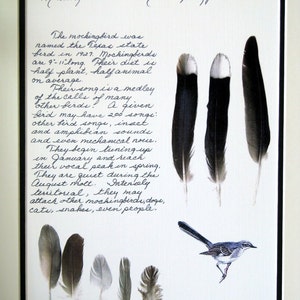 The mockingbird was
named the Texas state
bird in 1927. Mockingbirds
are 9-11" long. Their diet is
half plant, half animal
on average.
Their song is a medley
of the calls of many
other birds. A given
bird may have 200 songs:
other bird songs, insect
and amphibian sounds
and even mechanical noise.
They begin tuning up
in January and reach
their vocal peak in spring.
They are quiet during the
August molt. Intensely
territorial, they may
attack other mockingbirds, dogs,
cats, snakes, even people.